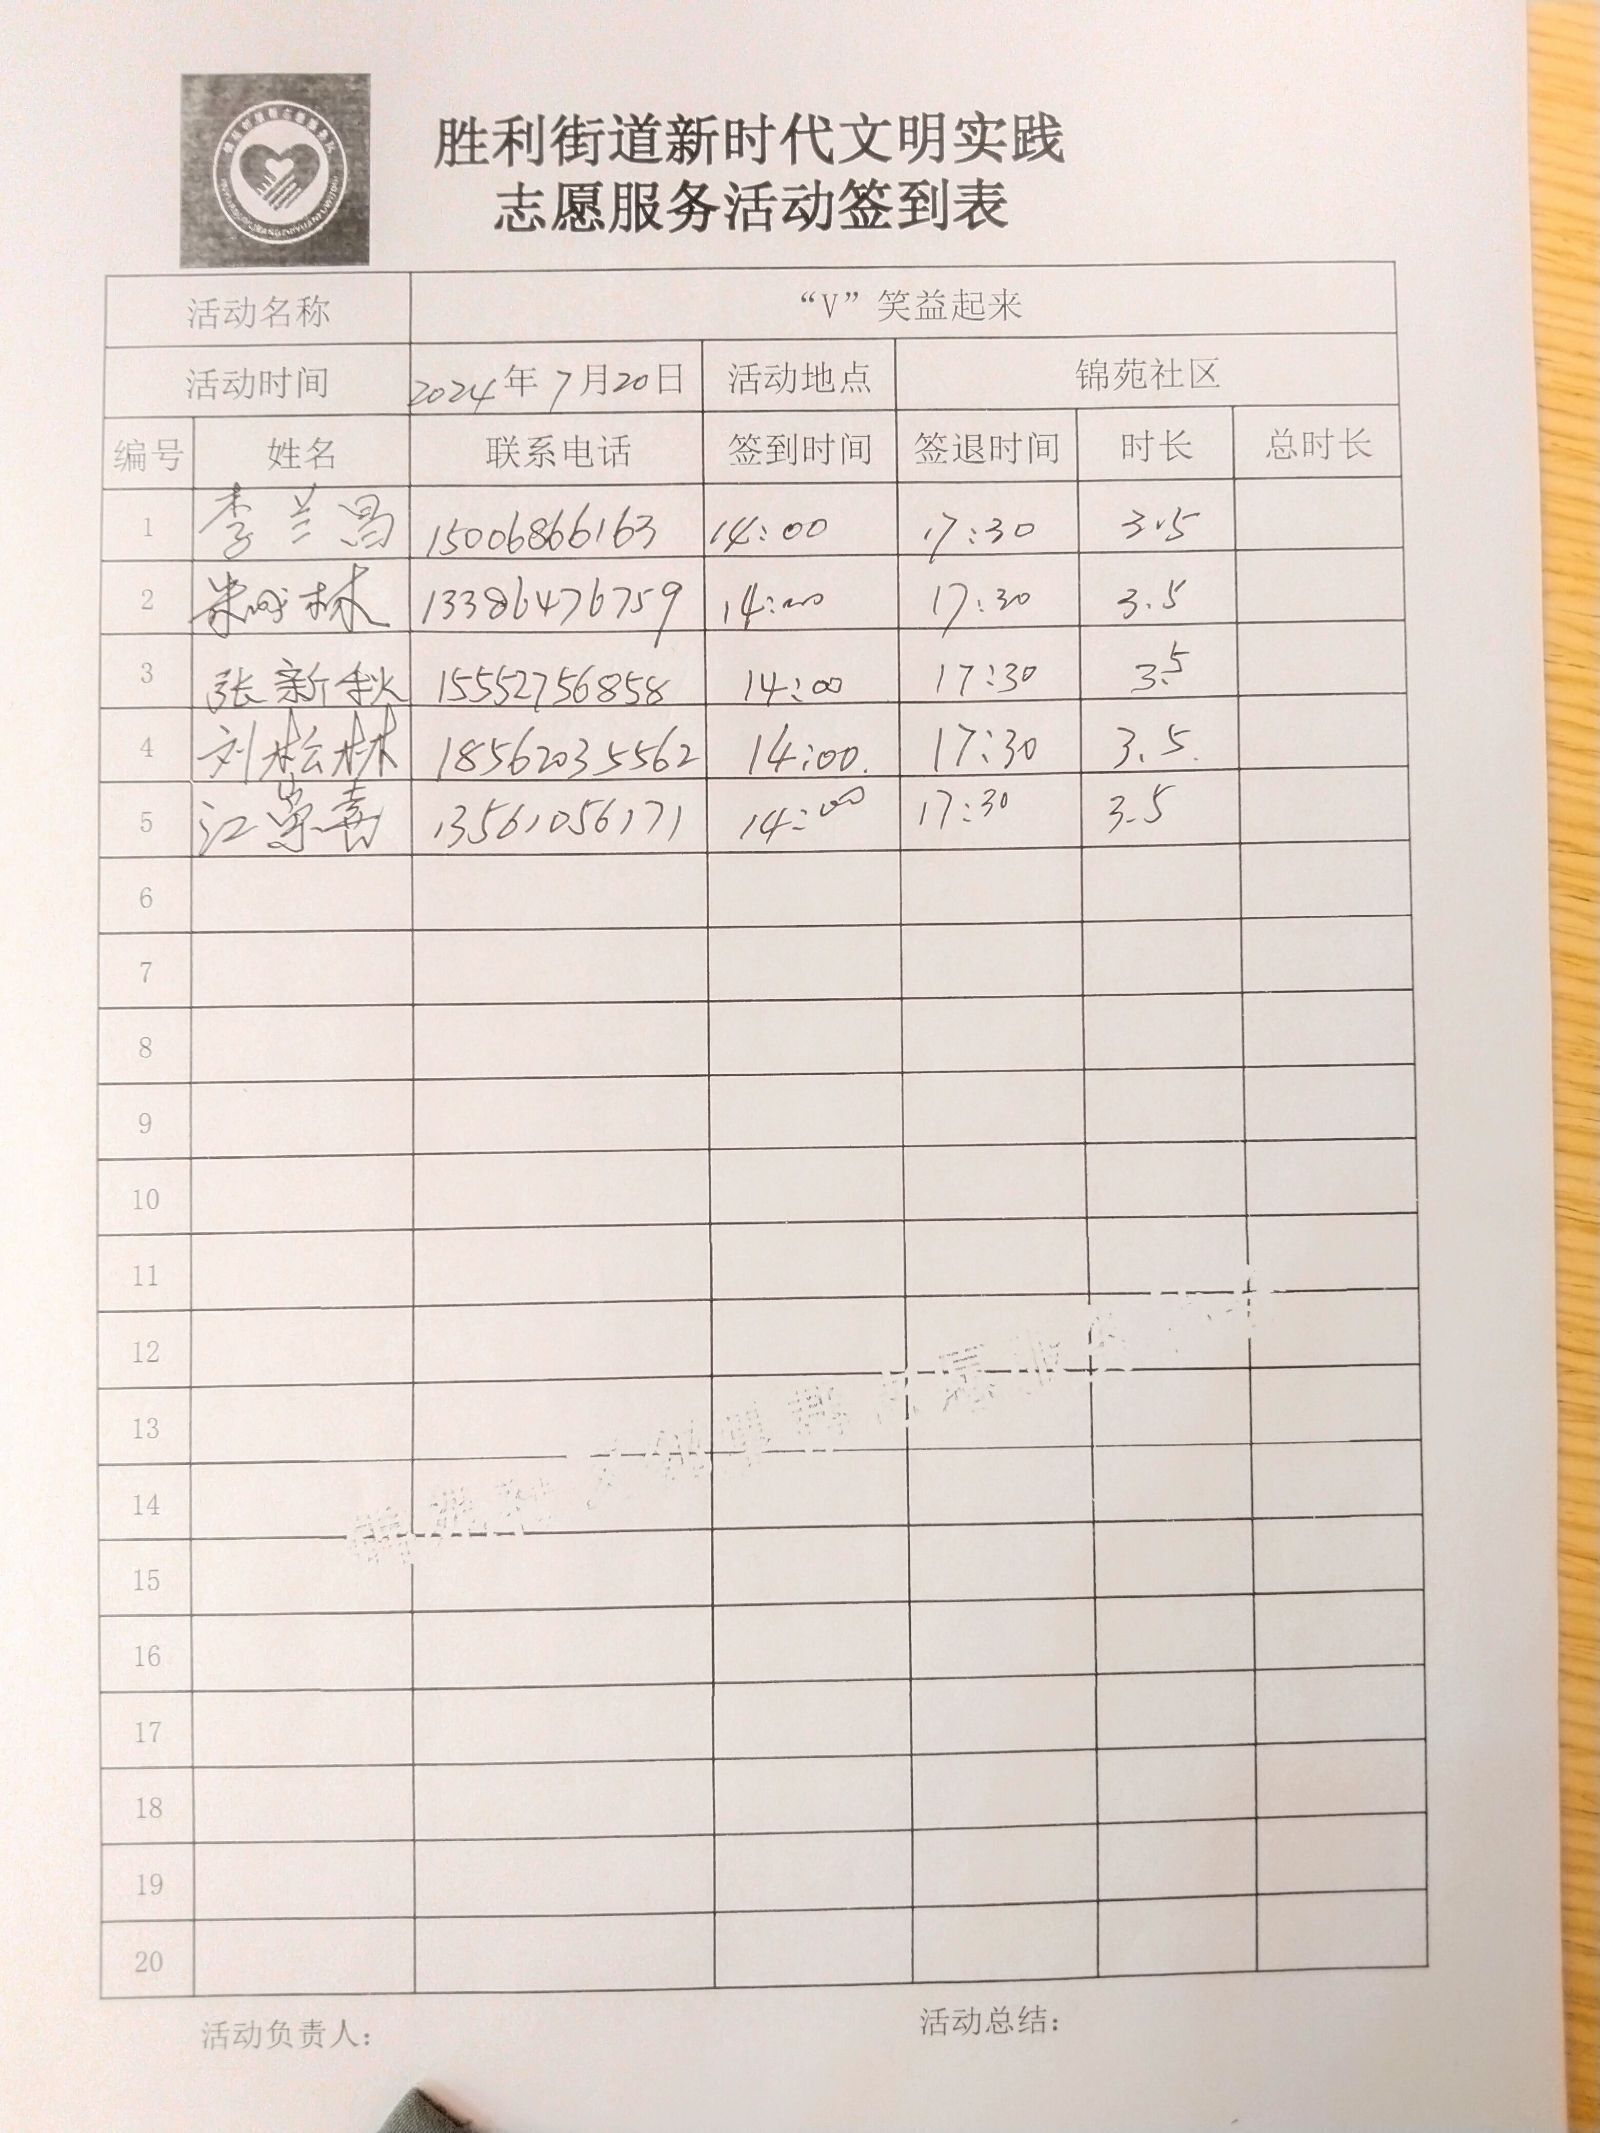 胜利街道新时代文明实践
志愿服务活动签到表
活动名称 “V”笑益起来
活动时间 2024年7月20日 活动地点 锦苑社区
编号 姓名 联系电话 签到时间 签退时间 时长 总时长
1 李兰昌 15006866163 14:00 17:30 3.5
2 林 13386476759 14:00 17:30 3.5
3 张新秋 15552756858 14:00 17:30 3.5
4 刘松林 18562035562 14:00. 17:30 3.5.
5 江崇喜 13561056171 14:00 17:30 3.5
6
7
8
9
10
11
12
13
14
15
16
17
18
19
20
活动负责人： 活动总结：